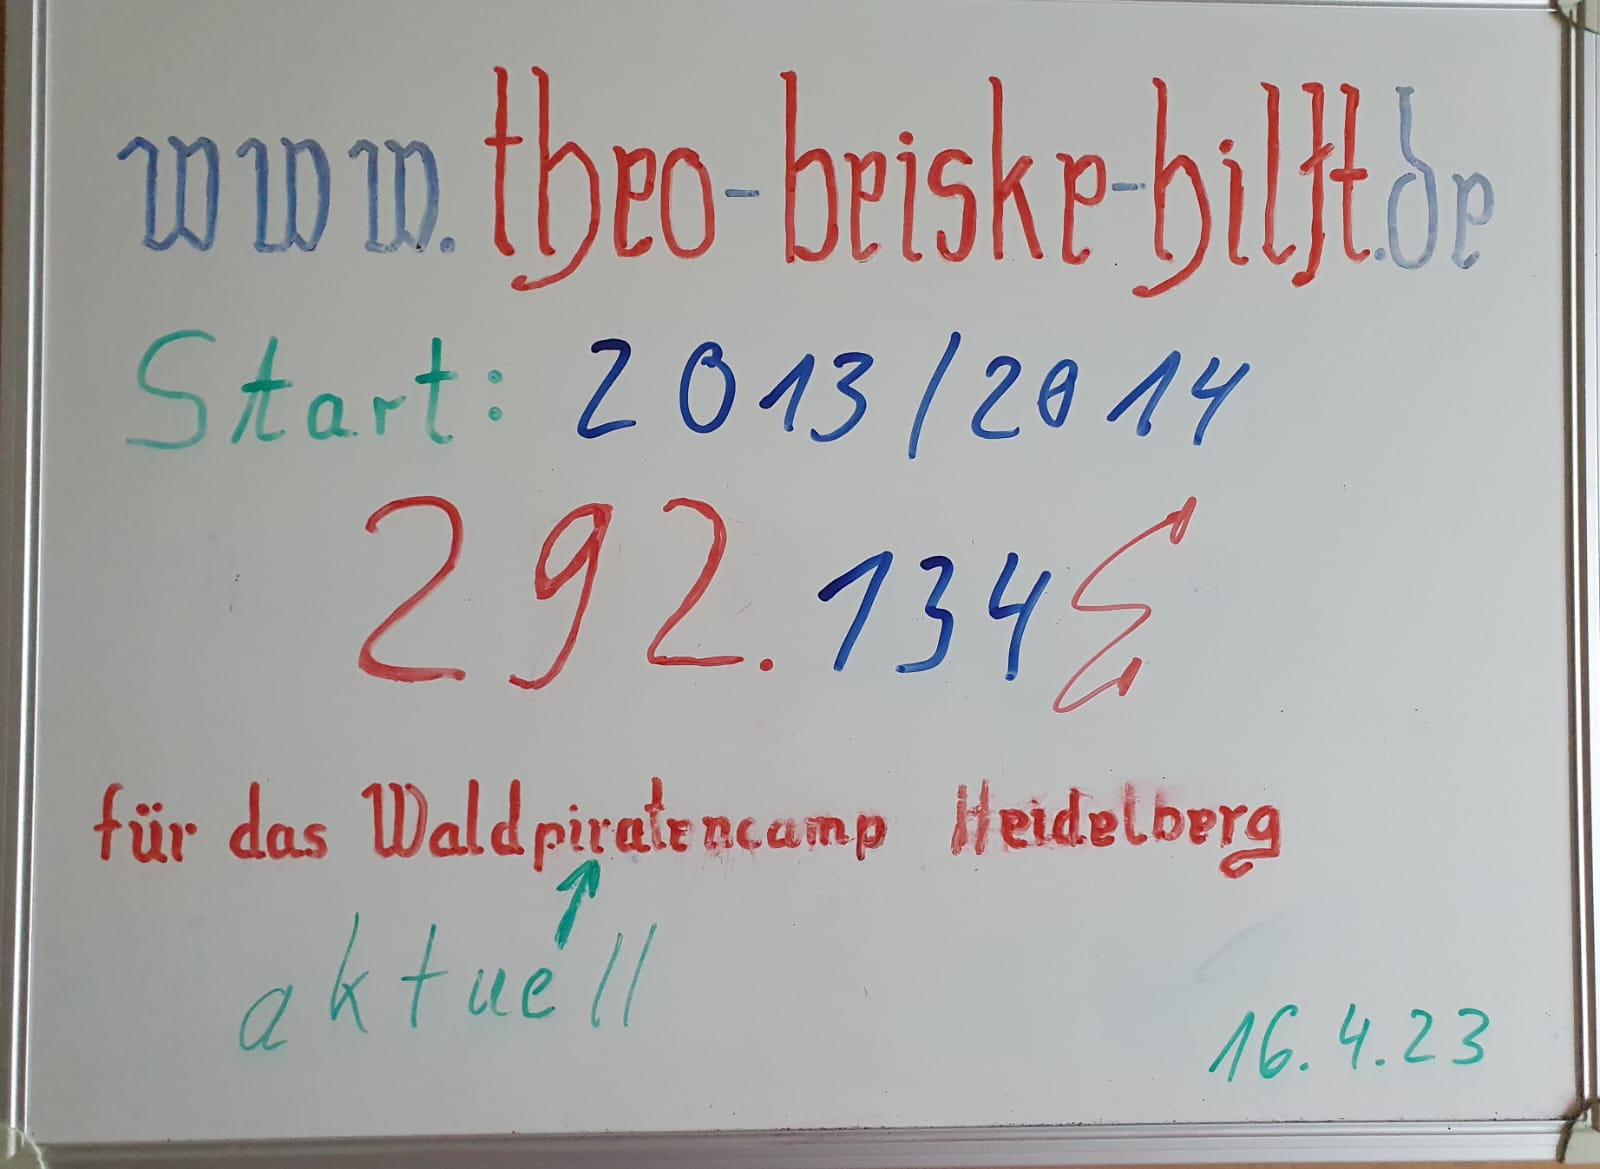 www.theo-beiske-hilft.de
Start: 2013/2014
292.134€
für das Waldpiratencamp Heidelberg
↑
aktuell
16.4.23